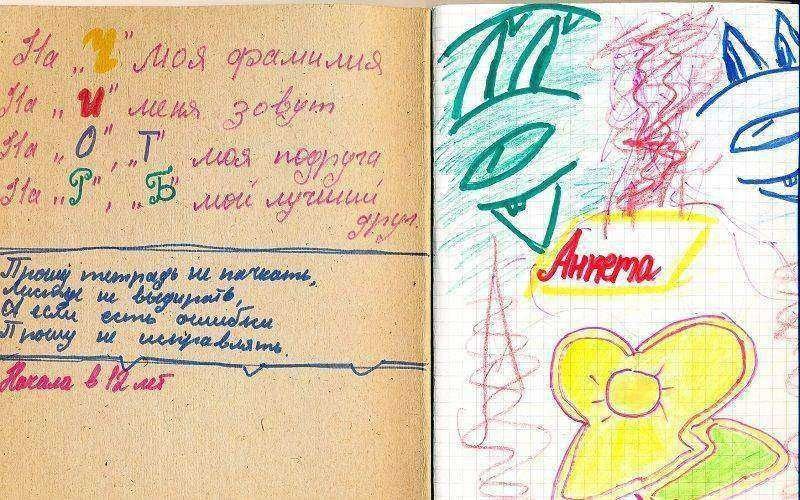 На „Ч" моя фамилия
На „И" меня зовут
На „О", „Т" моя подруга
На „Р", „Б" мой лучший
друг.
Прошу тетрадь не пачкать,
Листы не выдирать,
А если есть ошибки
Прошу не исправлять.
Начала в 12 лет
Анкета